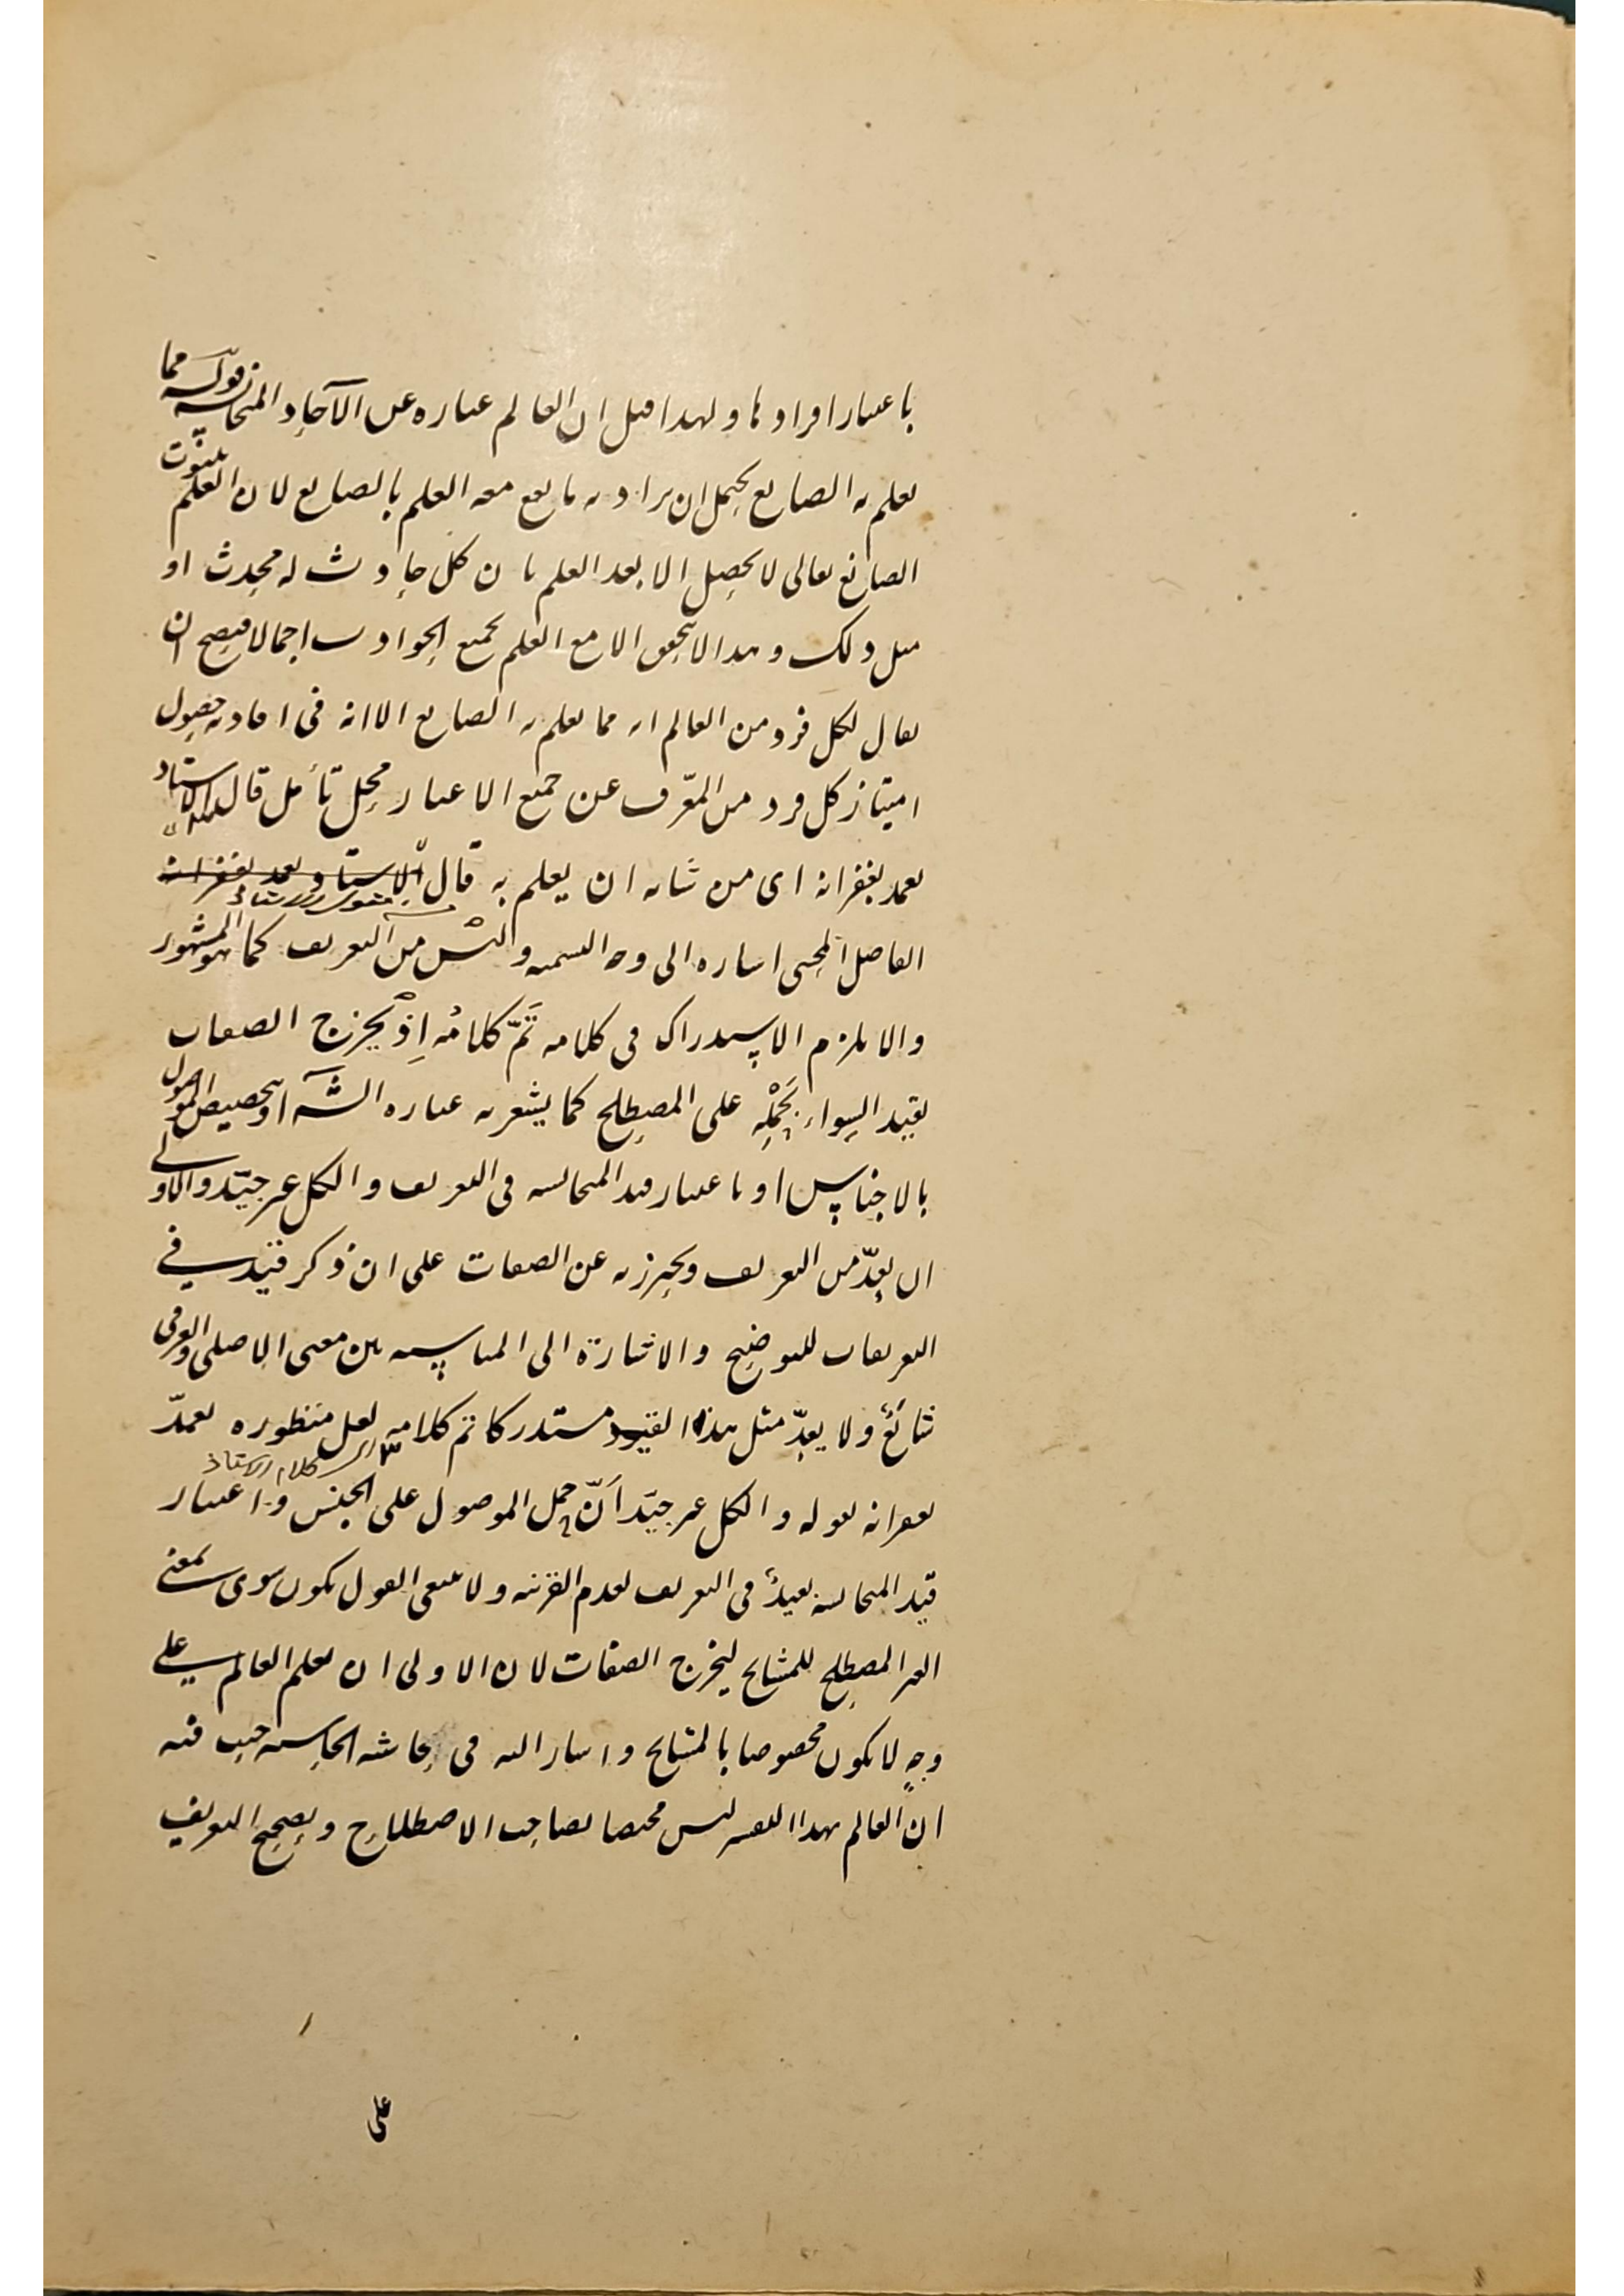 باعتبار افرادها ولهذا قيل ان العالم عباره عن الآحاد المتجانسه قوله مما
يعلم به الصانع يحتمل ان يراد به ما يقع معه العلم بالصانع لان العلم بثبوت
الصانع تعالى لا يحصل الا بعد العلم بان كل حادث له محدث او
مثل ذلك وهذا لا يتحقق الا مع العلم بجميع الحوادث اجمالا فيصح ان
يقال لكل فرد من العالم انه مما يعلم به الصانع الا انه فى افادته حصول
امتياز كل فرد من المعرّف عن جميع الاغيار محل تأمل قال الاستاد
تغمد بغفرانه اى من شانه ان يعلم به قال الاستاد تغمد بغفرانه
الفاضل المحشى اشاره الى وجه التسميه وليْس من التعريف كما هو المشهور
والا يلزم الاستدراك فى كلامه تَمّ كلامُه اِذْ يخرج الصفات
بقيد السواء بحَمْلِه على المصطلح كما يشعر به عباره الشه او بتخصيص الموصول
بالاجناس او باعتبار قيد المجانسه فى التعريف والكل غير جيّد والاولى
ان يعدّ من التعريف ويحترز به عن الصفات على ان ذكر قيد فى
التعريفات للتوضيح والاشارة الى المناسبه بين معنى الاصلى والعرفى
شائعٌ ولا يعدّ مثل هذا القيود مستدركا تم كلامه لعل منظوره تغمدّ
اى كلام الاستاذ
بغفرانه بقوله والكل غير جيّد اَنّ حمل الموصول على الجنس واعتبار
قيد المجانسه بعيدٌ فى التعريف لعدم القرينه ولا ينبغى القول بكون سوى بمعنى
الغير المصطلح للمشايخ ليخرج الصفات لان الاولى ان يعلم العالم على
وجهٍ لا يكون مخصوصا بالمشايخ واشار اليه فى حاشيه الحاشيه حيث قيد
ان العالم بهذا التفسير ليس مختصا بصاحب الاصطلاح وتصحيح التعريف
على